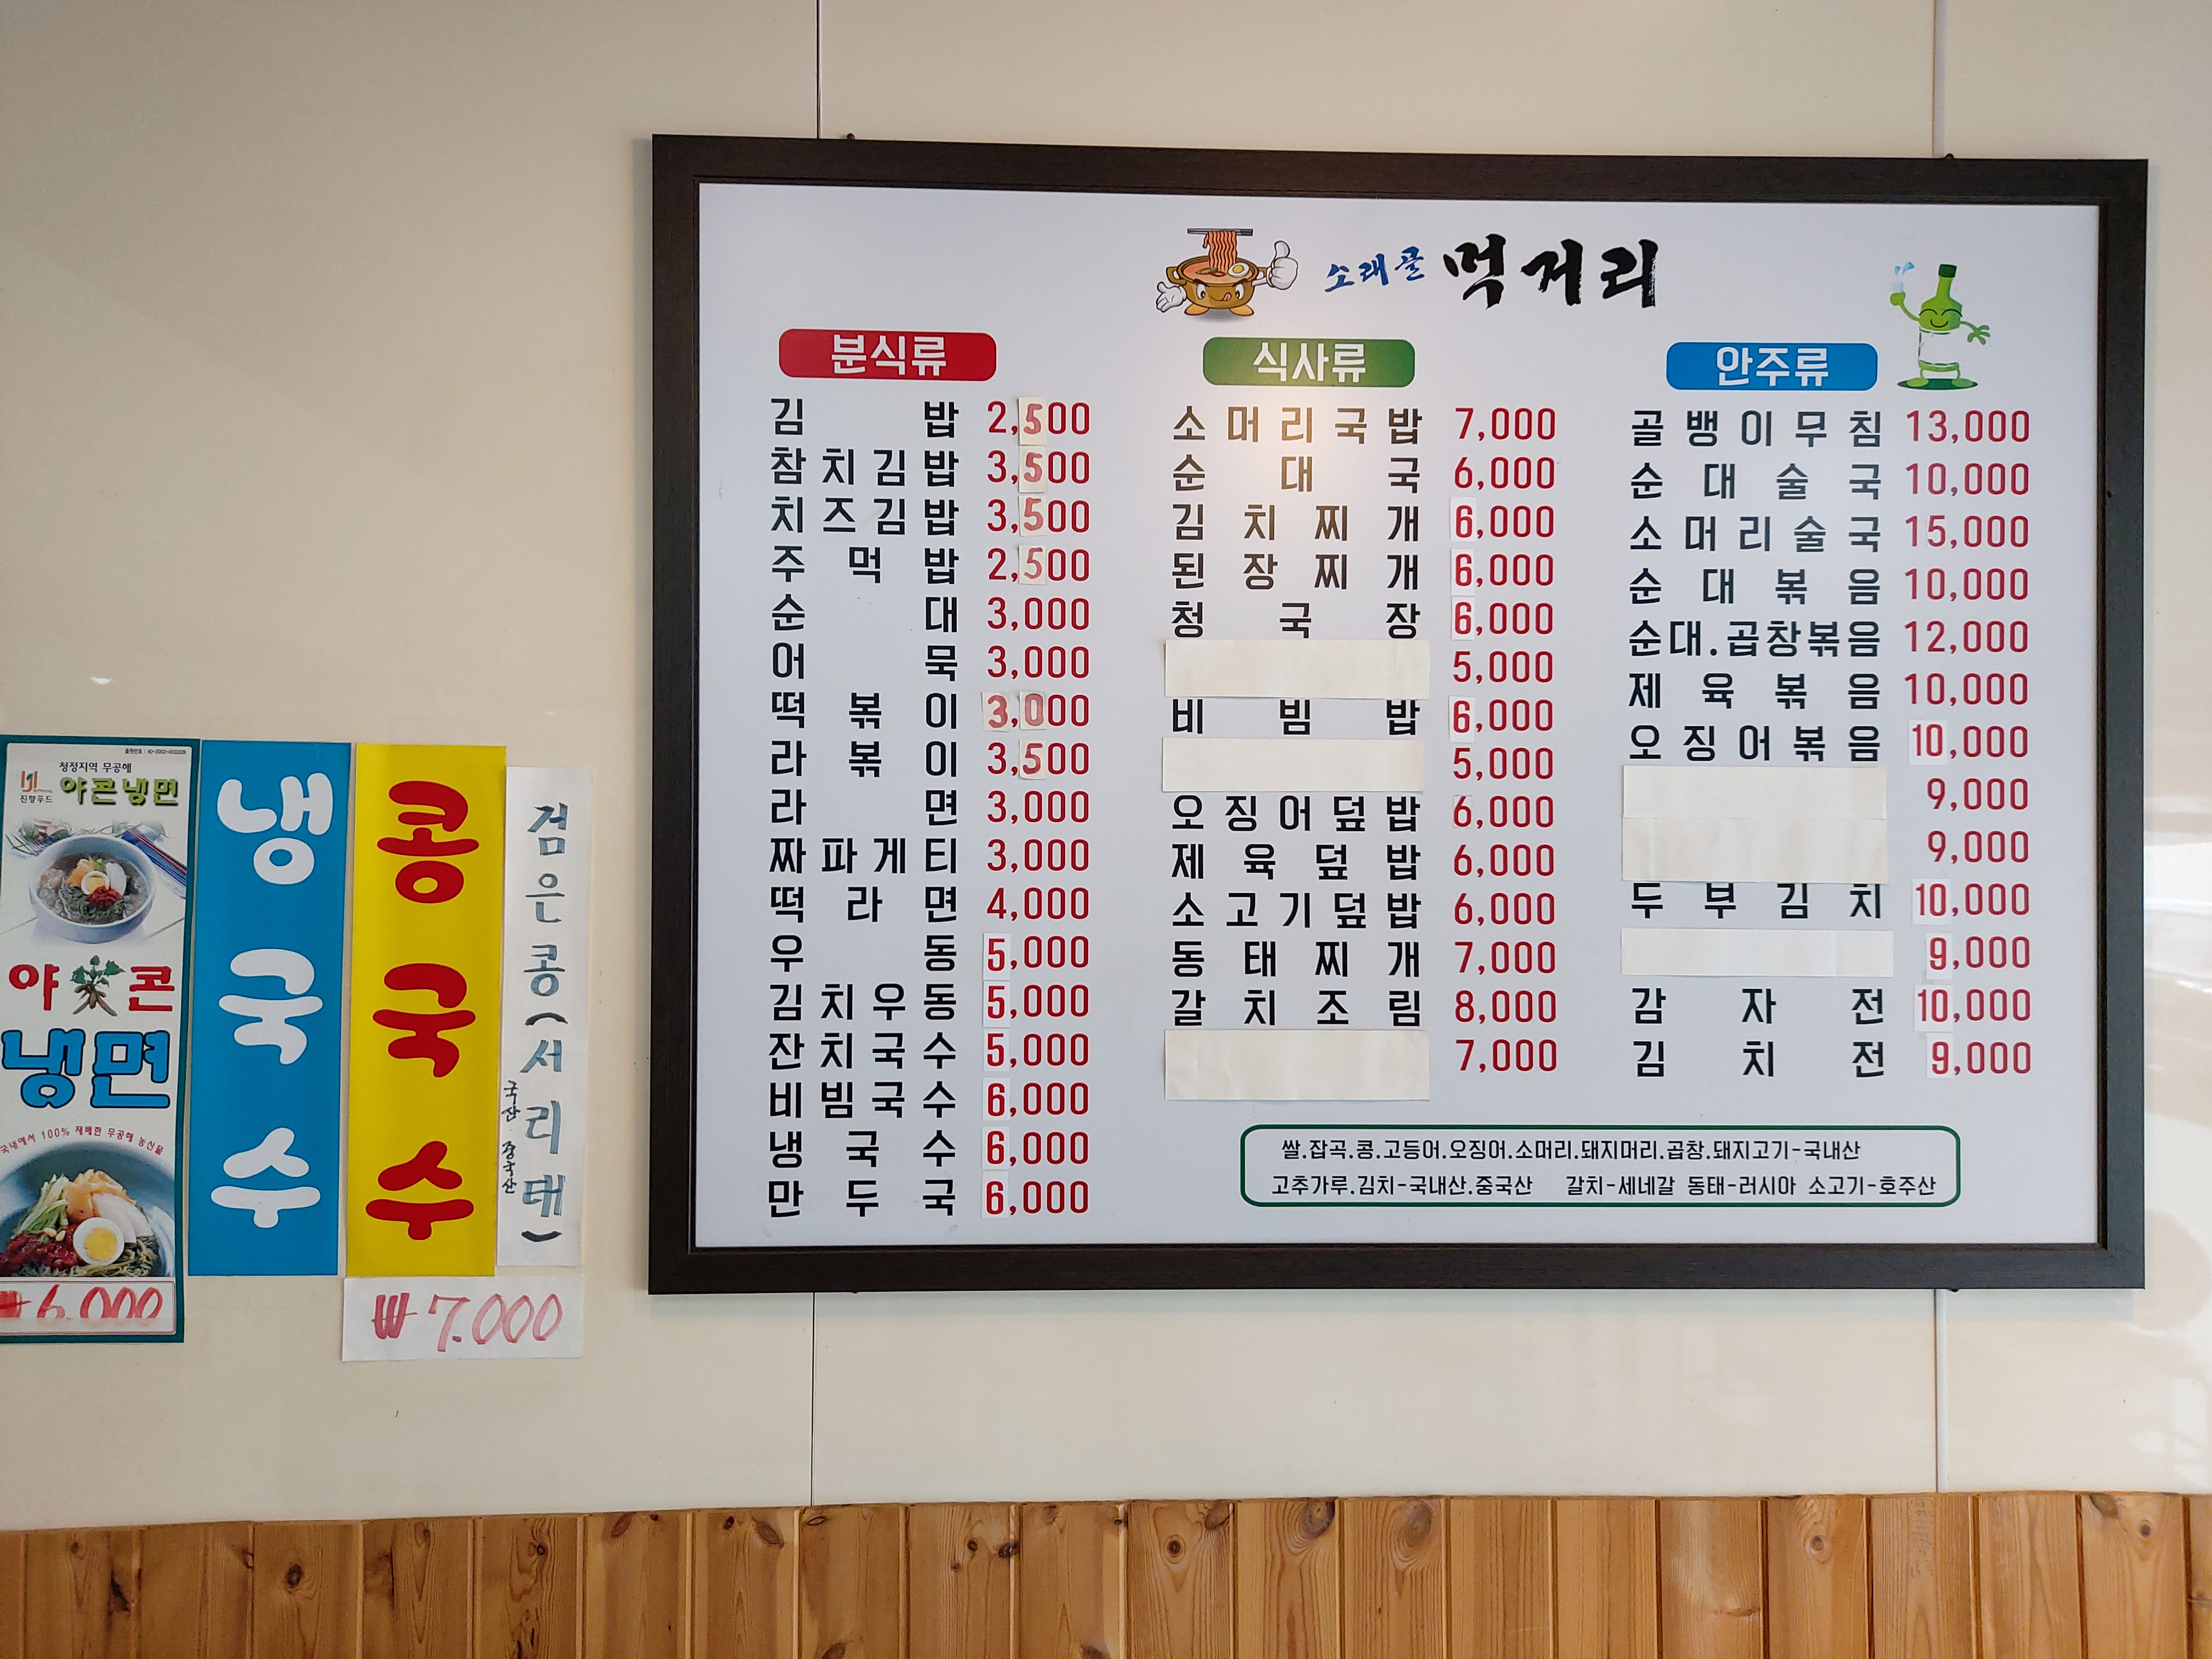 청정지역 무공해
진향푸드
야콘냉면
야콘
냉면
국내에서 100% 재배한 무공해 농산물
₩6,000
냉국수
콩국수
검은콩(서리태)
국산 중국산
₩7.000
소래골 먹거리
분식류
김밥 2,500
참치김밥 3,500
치즈김밥 3,500
주먹밥 2,500
순대 3,000
어묵 3,000
떡볶이 3,000
라볶이 3,500
라면 3,000
짜파게티 3,000
떡라면 4,000
우동 5,000
김치우동 5,000
잔치국수 5,000
비빔국수 6,000
냉국수 6,000
만두국 6,000
식사류
소머리국밥 7,000
순대국 6,000
김치찌개 6,000
된장찌개 6,000
청국장 6,000
5,000
비빔밥 6,000
5,000
오징어덮밥 6,000
제육덮밥 6,000
소고기덮밥 6,000
동태찌개 7,000
갈치조림 8,000
7,000
안주류
골뱅이무침 13,000
순대술국 10,000
소머리술국 15,000
순대볶음 10,000
순대.곱창볶음 12,000
제육볶음 10,000
오징어볶음 10,000
9,000
9,000
두부김치 10,000
9,000
감자전 10,000
김치전 9,000
쌀.잡곡.콩.고등어.오징어.소머리.돼지머리.곱창.돼지고기-국내산
고추가루.김치-국내산.중국산 갈치-세네갈 동태-러시아 소고기-호주산